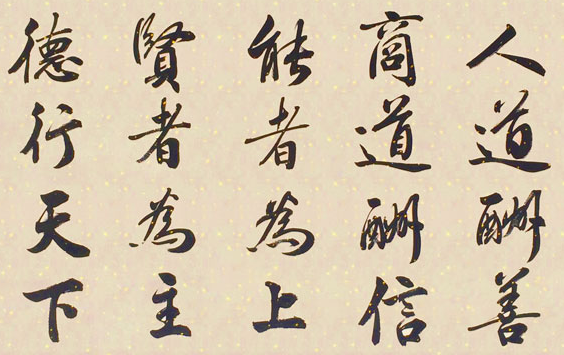 人道酬善
商道酬信
能者為上
賢者為主
德行天下